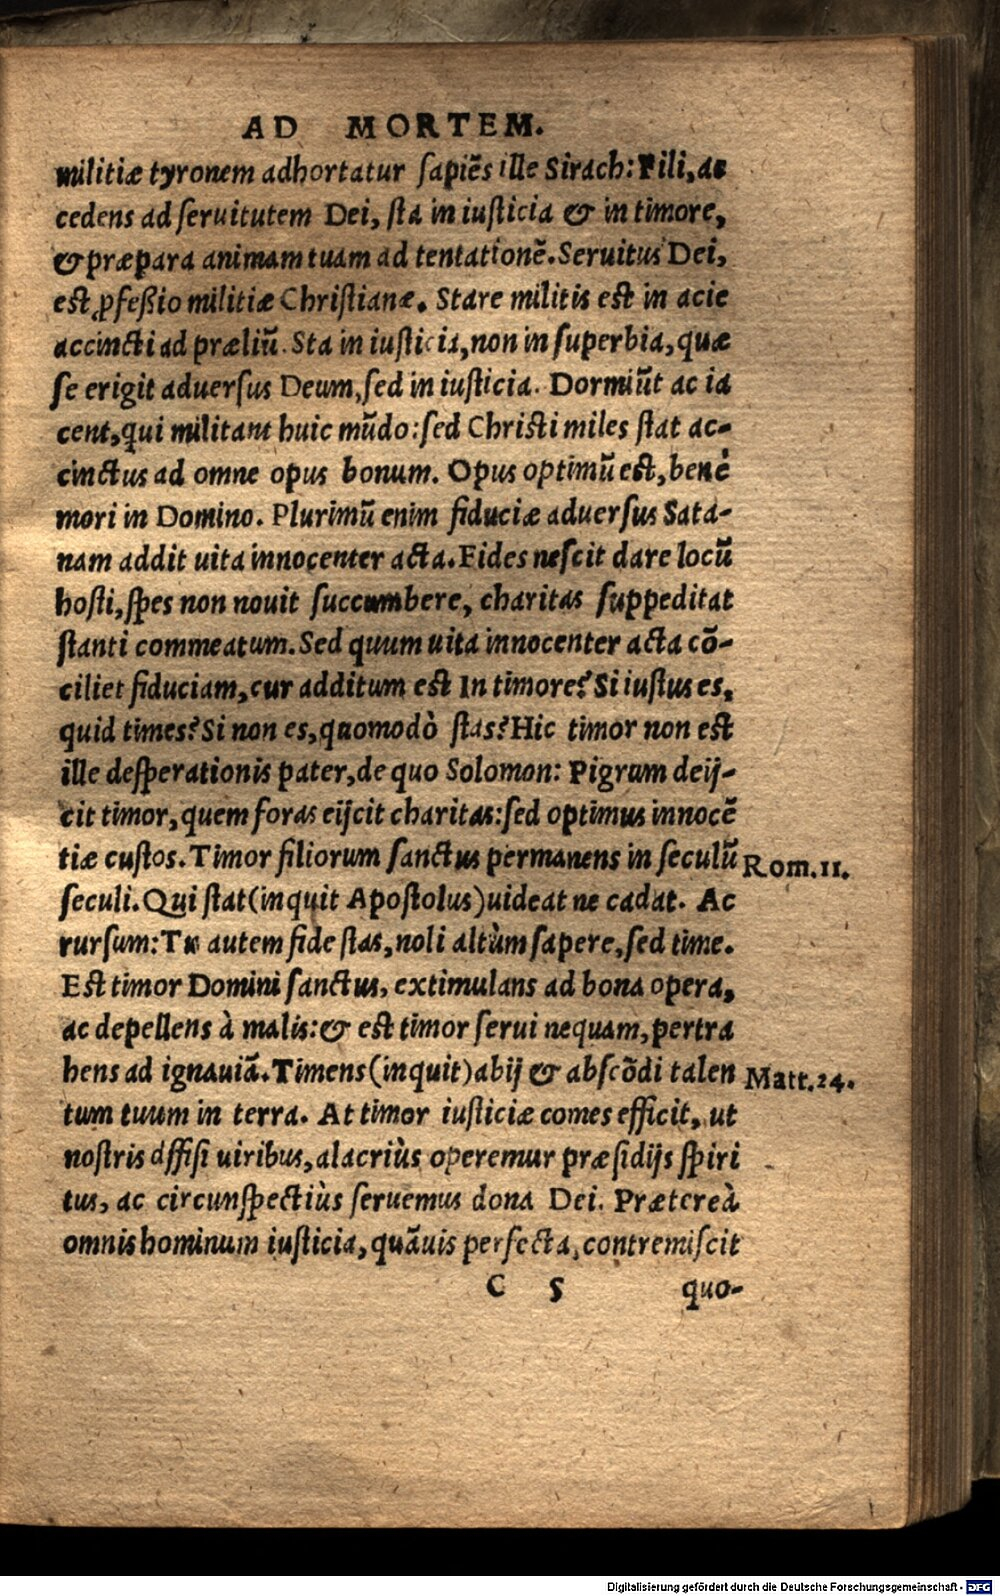 AD MORTEM.
militiæ tyronem adhortatur sapiẽs ille Sirach: Fili, ac
cedens ad seruitutem Dei, sta in iusticia & in timore,
& præpara animam tuam ad tentationẽ. Seruitus Dei,
est ꝓfeßio militiæ Christianæ. Stare militis est in acie
accincti ad præliũ. Sta in iusticia, non in superbia, quæ
se erigit aduersus Deum, sed in iusticia. Dormiũt ac ia
cent, qui militant huic mũdo: sed Christi miles stat ac-
cinctus ad omne opus bonum. Opus optimũ est, benè
mori in Domino. Plurimũ enim fiduciæ aduersus Sata-
nam addit uita innocenter acta. Fides nescit dare locũ
hosti, spes non nouit succumbere, charitas suppeditat
stanti commeatum. Sed quum uita innocenter acta cõ-
ciliet fiduciam, cur additum est In timore? Si iustus es,
quid times? Si non es, quomodò stas? Hic timor non est
ille desperationis pater, de quo Solomon: Pigrum deij-
cit timor, quem foras eijcit charitas: sed optimus innocẽ
tiæ custos. Timor filiorum sanctus permanens in seculũ
Rom.11.
seculi. Qui stat (inquit Apostolus) uideat ne cadat. Ac
rursum: Tu autem fide stas, noli altùm sapere, sed time.
Est timor Domini sanctus, extimulans ad bona opera,
ac depellens à malis: & est timor serui nequam, pertra
hens ad ignauiã. Timens (inquit) abij & abscõdi talen
Matt.24.
tum tuum in terra. At timor iusticiæ comes efficit, ut
nostris diffisi uiribus, alacriùs operemur præsidijs spiri
tus, ac circunspectiùs seruemus dona Dei. Prætereà
omnis hominum iusticia, quãuis perfecta, contremiscit
C 5 quo-
Digitalisierung gefördert durch die Deutsche Forschungsgemeinschaft - DFG